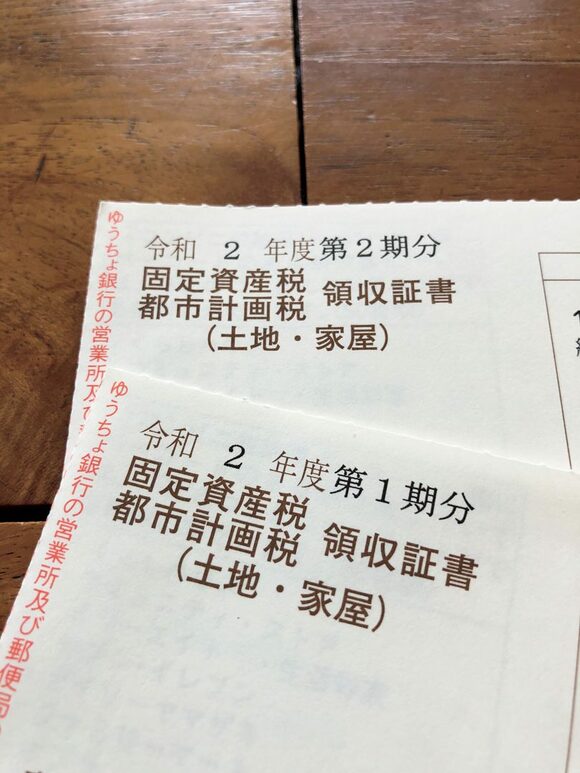 令和 2 年度第2期分
固定資産税
都市計画税 領収証書
(土地・家屋)
ゆうちょ銀行の営業所及び
令和 2 年度第1期分
固定資産税
都市計画税 領収証書
(土地・家屋)
ゆうちょ銀行の営業所及び郵便局